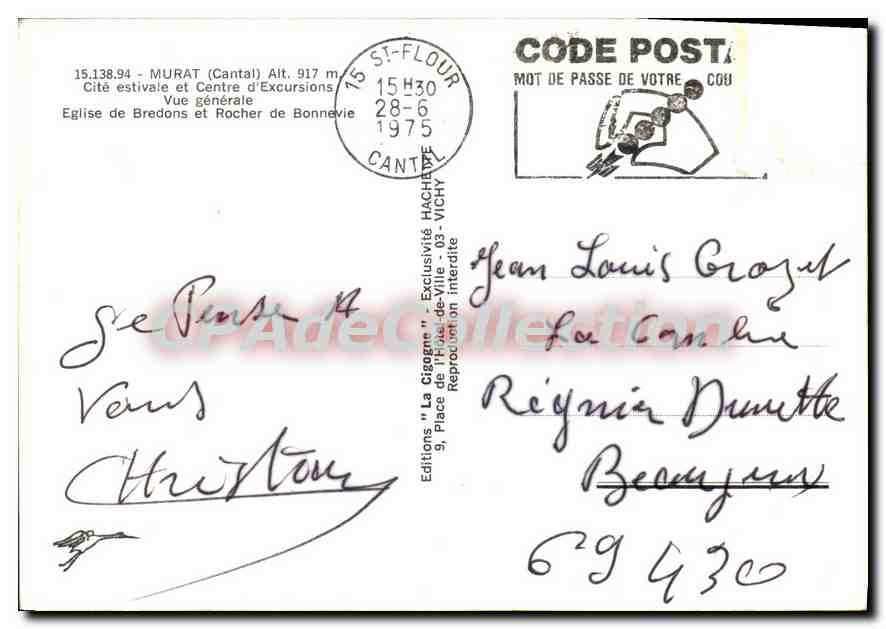 15.138.94 - MURAT (Cantal) Alt. 917 m.
Cité estivale et Centre d'Excursions
Vue générale
Eglise de Bredons et Rocher de Bonnevie
15 ST-FLOUR
15H30
28-6
1975
CANTAL
CODE POSTA
MOT DE PASSE DE VOTRE COU
Je Pense A
Vous
Editions "La Cigogne" - Exclusivité HACHETTE
9, Place de l'Hôtel-de-Ville - 03 - VICHY
Reproduction interdite
Jean Louis Crozet
La Combe
Régnié Durette
Beaujeu
69430
CPAdeCollection